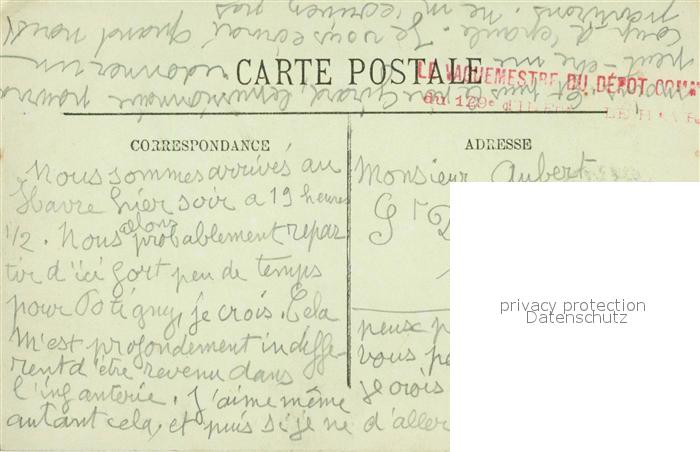 CARTE POSTALE
LE VAGUEMESTRE DU DÉPOT COM
du 129e LE HAV
CORRESPONDANCE
ADRESSE
Nous sommes arrivés au
Havre hier soir a 19 heures
1/2. Nous allons probablement repar
tir d'ici fort peu de temps
pour Potigny, je crois. Cela
m'est profondement indiffe-
rent d'être revenu dans
l'infanterie. J'aime même
autant cela, et puis si je ne d'aller
Monsieur Aubert
peux p
vous p
je crois
peut-être me redonner un
coup d'épaule. Je vous écrirai quand nous
partirons. ne m'écrivez pas
privacy protection
Datenschutz